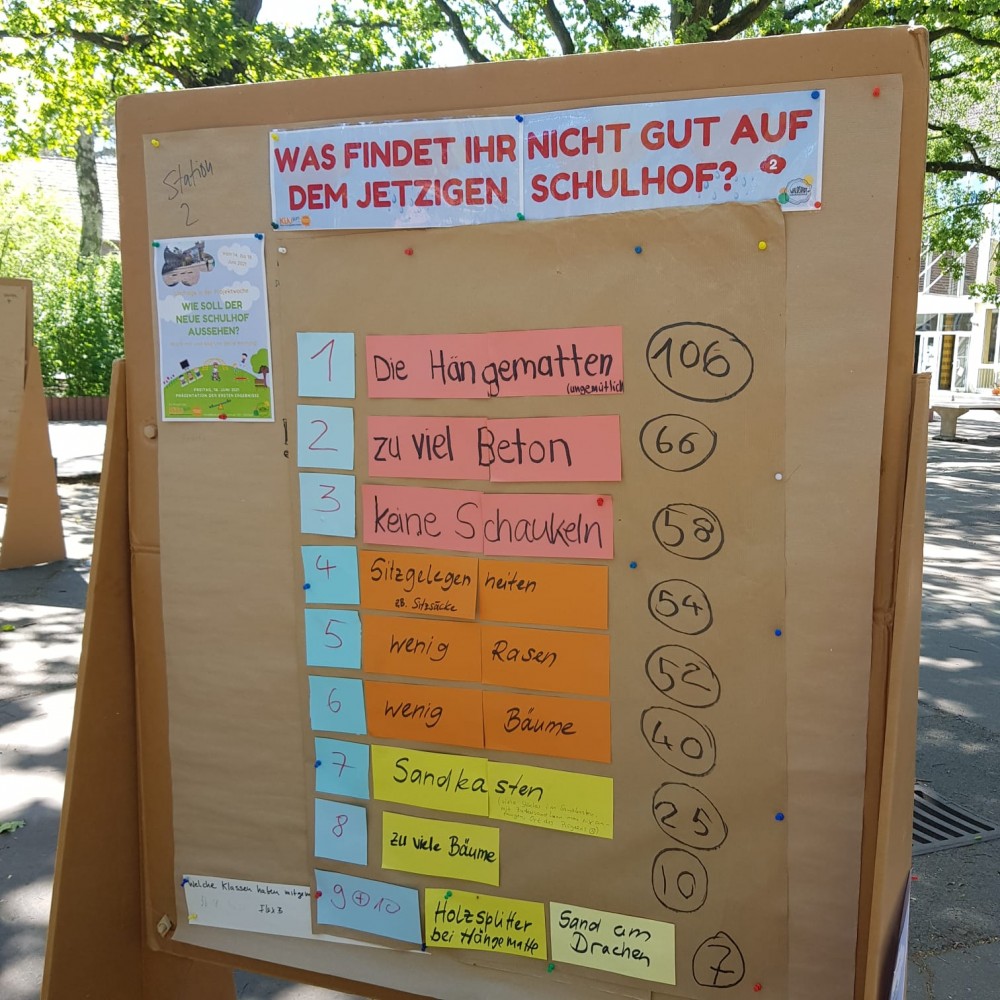 Station
2
WAS FINDET IHR NICHT GUT AUF
DEM JETZIGEN SCHULHOF?
2
WIE SOLL DER
NEUE SCHULHOF
AUSSEHEN?
PRÄSENTATION DER ERSTEN ERGEBNISSE
1 Die Hängematten 106
(ungemütlich
2 zu viel Beton 66
3 keine Schaukeln 58
4 Sitzgelegenheiten 54
zB. Sitzsäcke
5 wenig Rasen 52
6 wenig Bäume 40
7 Sandkasten 25
8 zu viele Bäume 10
Welche Klassen haben
9 + 10 Holzsplitter
bei Hängematte
Sand am
Drachen
7